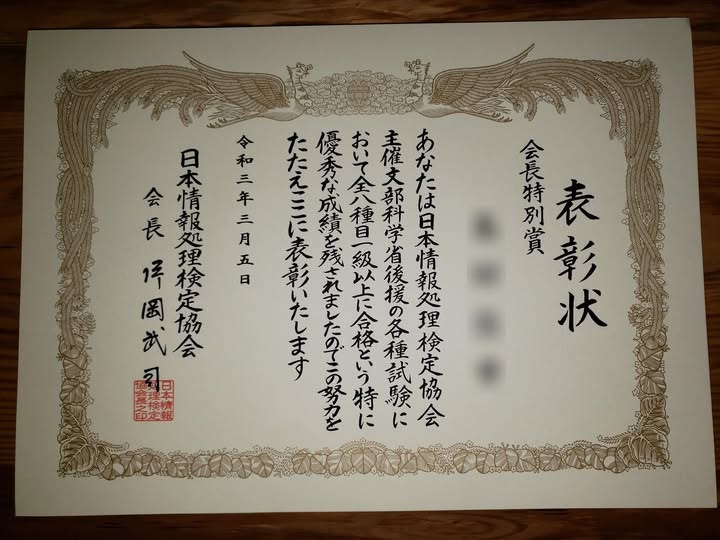 表彰状
会長特別賞
あなたは日本情報処理検定協会
主催文部科学省後援の各種試験に
おいて全八種目一級以上に合格という特に
優秀な成績を残されましたのでこの努力を
たたえここに表彰いたします
令和三年三月五日
日本情報処理検定協会
会長 岡武司
日本情報
処理検定
協会長之印